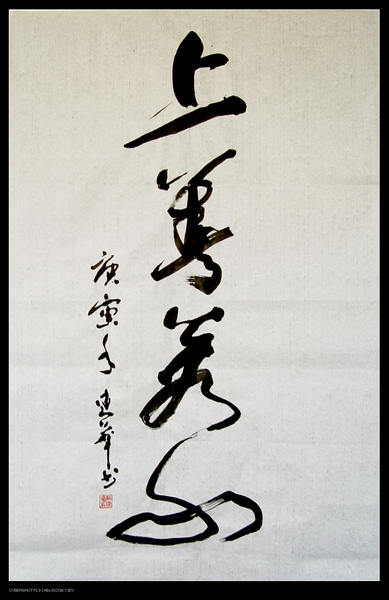 上善若水
庚寅年華书
CYBERSHOT F2.8 1/40s ISO100 1.3EV